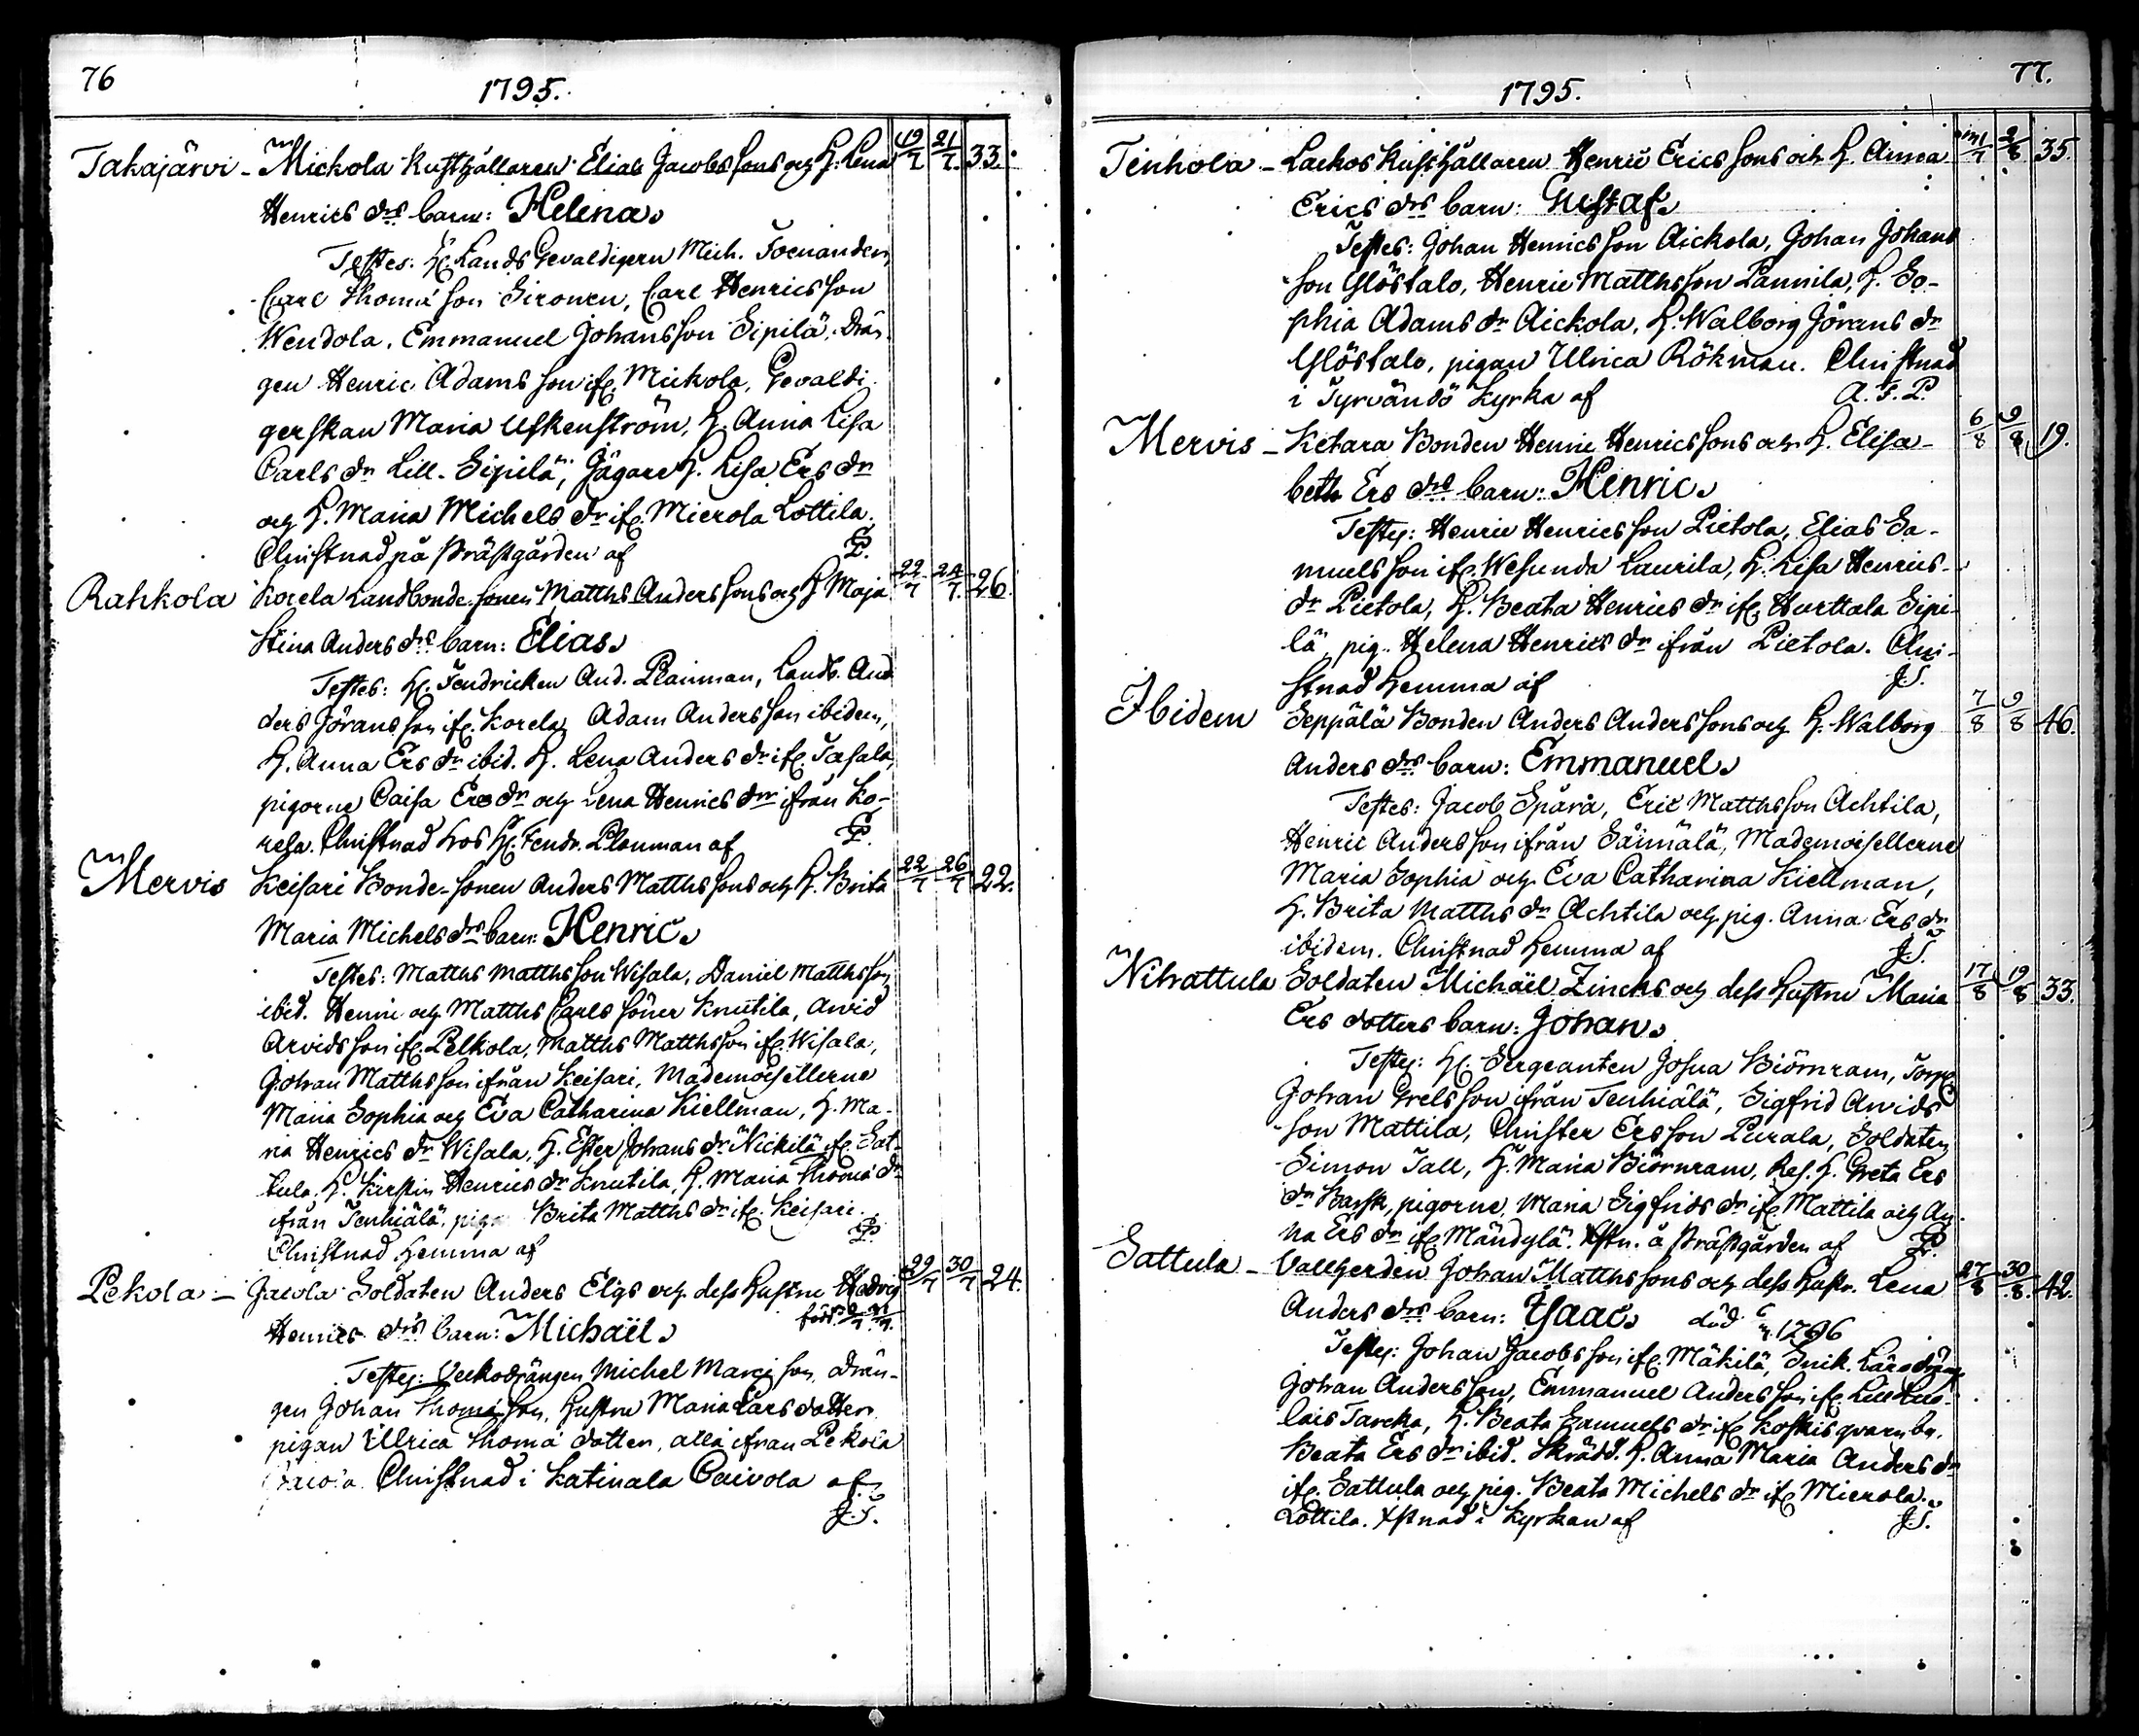 76
1795.
Takajärvi - Mickola Rusthållaren Elias Jacobs sons och H. Lena 19/7 21/7 33.
Henrics drs barn: Helena.
Testes: Hr. Lands Gevaldigern Mich. Toenanden,
Carl Thomæ son Sironen, Carl Henrics son
Wendola, Emmanuel Johansson Sipilä, Drän-
gen Henric Adams son ifr. Mickola, Gevaldi-
gerskan Maria Uskenström, H. Anna Lisa
Carls dr Lill-Sipilä, Jägare H. Lisa Ers dr
och H. Maria Michels dr ifr. Mierola Lottila.
Christnad på Prästgården af P.
Rahkola Korela Landbonde-sonen Matths Anders sons och H Maja 22/7 24/7 26.
Stina Anders drs barn: Elias.
Testes: Hr. Fendricken And. Planman, Landb. An-
ders Jörans son ifr. Korela, Adam Anders son ibidem,
H. Anna Ers dr ibid. H. Lena Anders dr ifr. Tasala,
pigorne Caisa Ers dr och Lena Henrics dr ifrån Ko-
rela. Christnad hos Hr. Fendr. Planman af P.
Mervis Keisari Bonde-sonen Anders Matths sons och H. Brita 22/7 26/7 22.
Maria Michels drs barn: Henric.
Testes: Matths Matths son Wisala, Daniel Matths son
ibid. Henric och Matths Carls söner Knutila, Arvid
Arvids son ifr. Pelkola, Matths Matths son ifr. Wisala,
Johan Matths son ifrån Keisari, Mademoisellerne
Maria Sophia och Eva Catharina Kiellman, H. Ma-
ria Henrics dr Wisala, H. Ester Johans dr Nickilä ifr. Sat-
tula, H. Kirstin Henrics dr Knutila, H. Maria Thomæ dr
ifrån Tenhiälä, piga Brita Matths dr ifr. Keisari.
Christnad hemma af P.
Pekola - Jacola Soldaten Anders Elgs och dess hustru Hedvig 29/7 30/7 24.
Henrics drs barn: Michaël.
Testes: Veckodrängen Michel Marci son, drän-
gen Johan Thomæ son, hustru Maria Lars dotter,
pigan Ulrica Thomæ dotter, alla ifrån Pekola
Jacola. Christnad i Katinala Caivola af
J.S.
77.
1795.
Tenhola - Lackos Rusthållaren Henric Erics sons och H. Anna 1/7 2/8 35.
Erics drs barn: Gustaf.
Testes: Johan Henrics son Aickola, Johan Johans
son Ylöstalo, Henric Matths son Pannila, H. So-
phia Adams dr Aickola, H. Walborg Jörans dr
Ylöstalo, pigan Ulrica Rökman. Christnad
i Tyrvändö Kyrka af A. F. P.
Mervis - Ketara Bonden Henric Henrics sons och H. Elisa- 6/8 9/8 19.
beth Ers drs barn: Henric.
Testes: Henric Henrics son Pietola, Elias Sa-
muels son ifr. Wesunda Laurila, H. Lisa Henrics
dr Pietola, H. Beata Henrics dr ifr. Hurttala Sipi-
lä, pig. Helena Henrics dr ifrån Pietola. Chri-
stnad hemma af J.S.
Ibidem Seppälä Bonden Anders Anders sons och H. Walborg 7/8 9/8 46.
Anders drs barn: Emmanuel.
Testes: Jacob Spåra, Eric Matths son Achtila,
Henric Anders son ifrån Säimälä, Mademoisellerne
Maria Sophia och Eva Catharina Kiellman,
H. Brita Matths dr Achtila och pig. Anna Ers dr
ibidem. Christnad hemma af J.S.
Nihattula Soldaten Michaël Zincks och dess hustru Maria 17/8 19/8 33.
Ers dotters barn: Johan.
Testes: Hr. Sergeanten Josua Biörnram, Torp.
Johan Grels son ifrån Tenhiälä, Sigfrid Arvids
son Mattila, Christer Ers son Purala, Soldaten
Simon Tall, H. Maria Biörnram, Res. H. Greta Ers
dr Barsk, pigorne Maria Sigfrids dr ifr. Mattila och An-
na Ers dr ifr. Mändylä. Xstn. å Prästgården af P.
Sattula - Vallherden Johan Matths sons och dess hustr. Lena 27/8 30/8 42.
Anders drs barn: Isaac. död 1796
Testes: Johan Jacobs son ifr. Mäkilä, Snik. Läro dräng
Johan Anders son, Emmanuel Anders son ifr. Lill Lue-
lais Tarcka, H. Beata Samuels dr ifr. Koskis qvarn by,
Beata Ers dr ibid. Skrädd. H. Anna Maria Anders dr
ifr. Sattula och pig. Beata Michels dr ifr. Mierola
Lottila. Xstnad i Kyrkan af J.S.